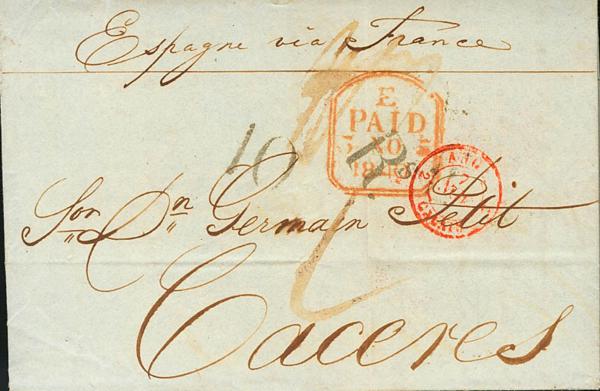 Espagne via France
E
PAID
5 NO 5
10
R
Sor Dn Germain Petit
Caceres